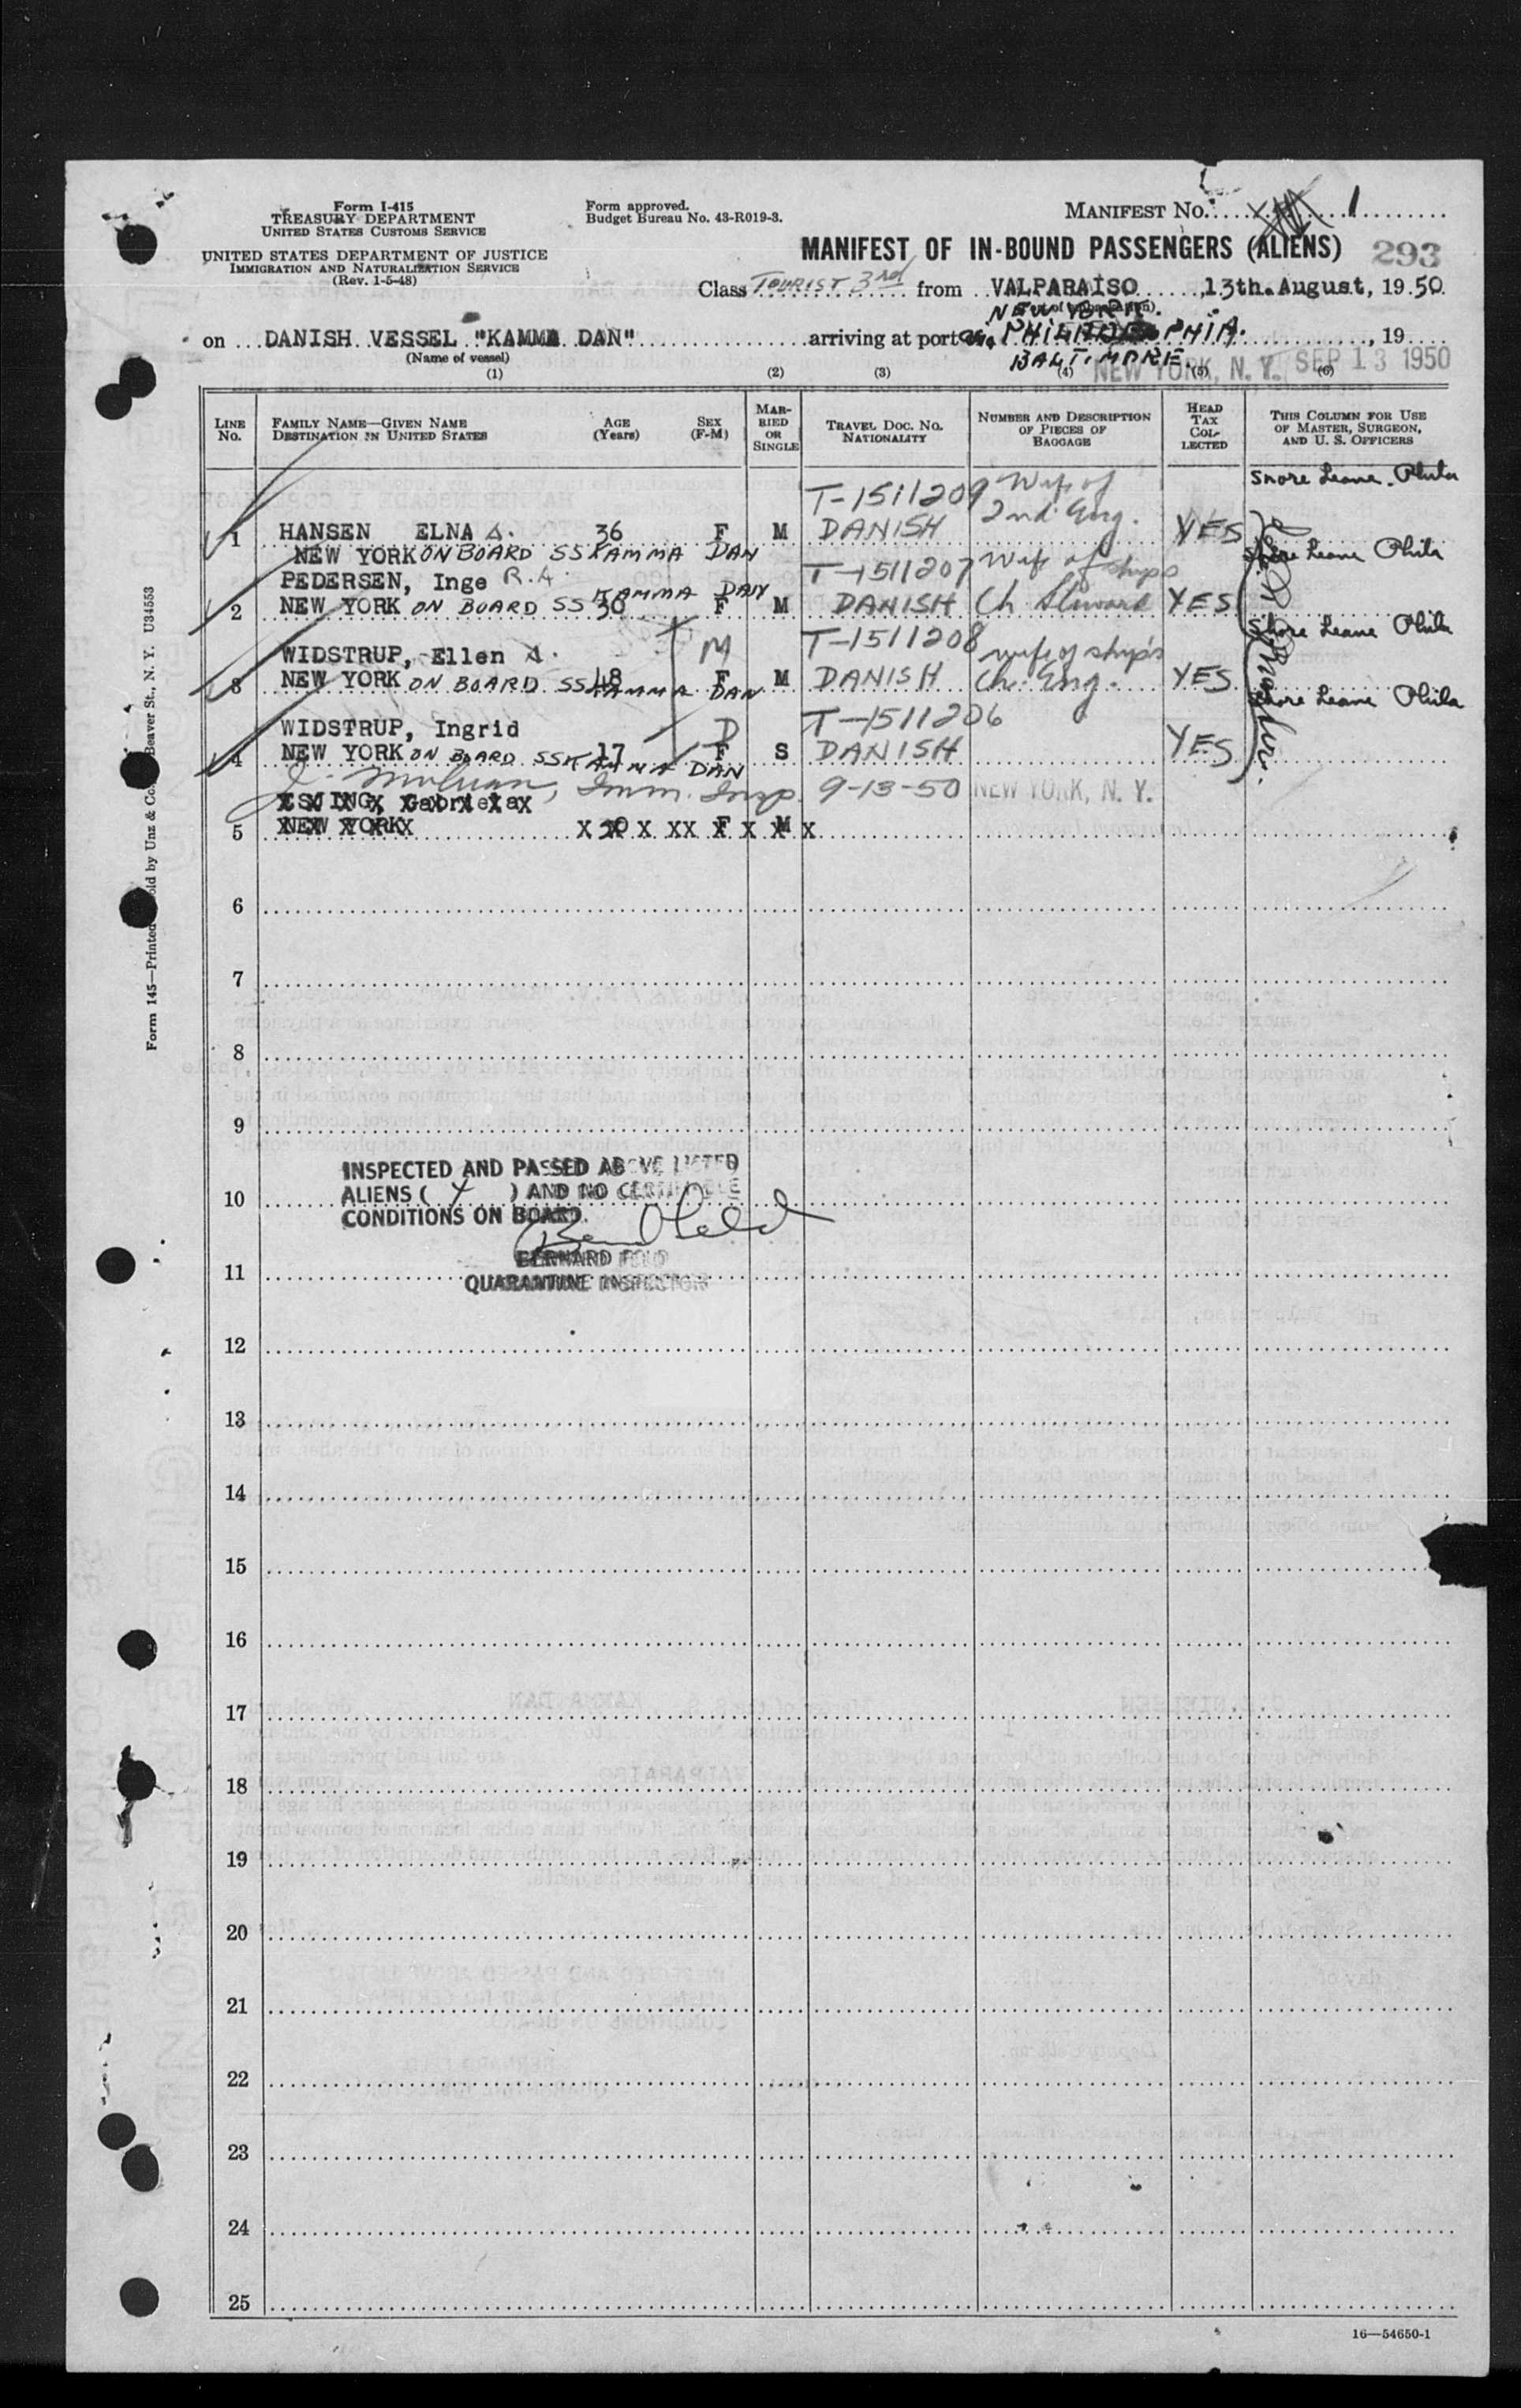 Form I-415
TREASURY DEPARTMENT
UNITED STATES CUSTOMS SERVICE
UNITED STATES DEPARTMENT OF JUSTICE
IMMIGRATION AND NATURALIZATION SERVICE
(Rev. 1-5-48)
Form approved.
Budget Bureau No. 43-R019-3.
MANIFEST No. 1
MANIFEST OF IN-BOUND PASSENGERS (ALIENS) 293
Class TOURIST 3rd from VALPARAISO, 13th. August, 19 50
NEW YORK.
on DANISH VESSEL "KAMMA DAN" arriving at port PHILADELPHIA. , 19
(Name of vessel)
BALTIMORE.
NEW YORK, N. Y. SEP 13 1950
(1) (2) (3) (4) (5) (6)
LINE No.
FAMILY NAME—GIVEN NAME
DESTINATION IN UNITED STATES
AGE (Years)
SEX (F-M)
MARRIED OR SINGLE
TRAVEL DOC. NO.
NATIONALITY
NUMBER AND DESCRIPTION
OF PIECES OF
BAGGAGE
HEAD
TAX
COLLECTED
THIS COLUMN FOR USE
OF MASTER, SURGEON,
AND U. S. OFFICERS
T-1511209 Wife of Shore Leave Phila
1 HANSEN ELNA A. 36 F M DANISH 2nd Eng. YES
NEW YORK ON BOARD SS KAMMA DAN
PEDERSEN, Inge R.A. T-1511207 Wife of ships Shore Leave Phila
2 NEW YORK ON BOARD SS KAMMA DAN 30 F M DANISH Ch Steward YES
WIDSTRUP, Ellen A. M T-1511208 wife of ship's Shore Leave Phila
3 NEW YORK ON BOARD SS KAMMA DAN 48 F M DANISH Ch. Eng. YES
WIDSTRUP, Ingrid D T-1511206 Shore Leave Phila
4 NEW YORK ON BOARD SS KAMMA DAN 17 F S DANISH YES
Imm. Insp. 9-13-50 NEW YORK, N. Y.
5 NEW YORK F M
6
7
8
9
INSPECTED AND PASSED ABOVE LISTED
10 ALIENS ( 4 ) AND NO CERTIFIABLE
CONDITIONS ON BOARD.
BERNARD FELD
11 QUARANTINE INSPECTOR
12
13
14
15
16
17
18
19
20
21
22
23
24
25
16—54650-1
Form 145—Printed Sold by Unz & Co. Beaver St., N. Y. U34553